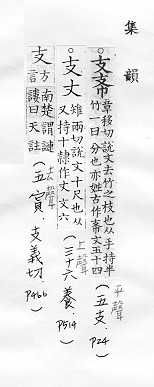 集韻
。支𠦙 章移切說文去竹之枝也从手持半
竹一曰分也亦姓古作𠦙文五十四
(五支.P24)
平聲
。支丈 雉兩切說文十尺也从
又持十隸作丈文六
(三十六養.P514)
上聲
支 方言南楚謂謰
謱曰支註
(五寘.支義切.P466)
去聲